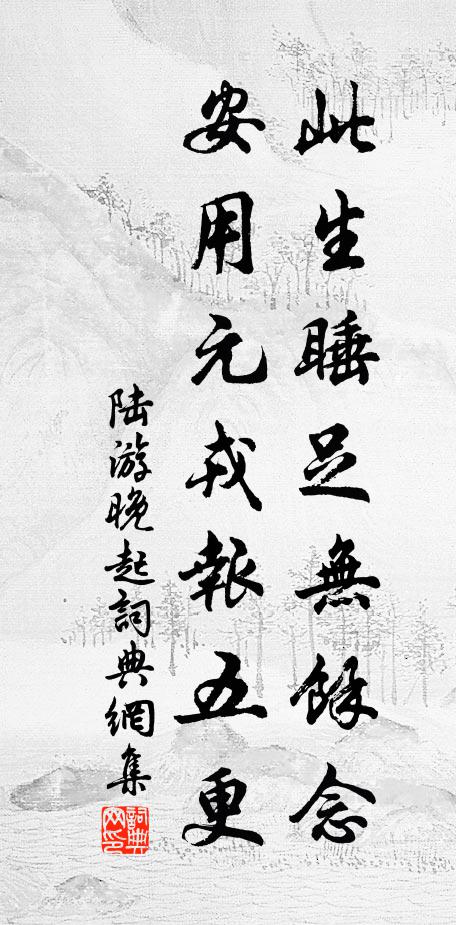 此生睡足無餘念
安用元戎報五更
陆游晚起詞典網集
詞典網印